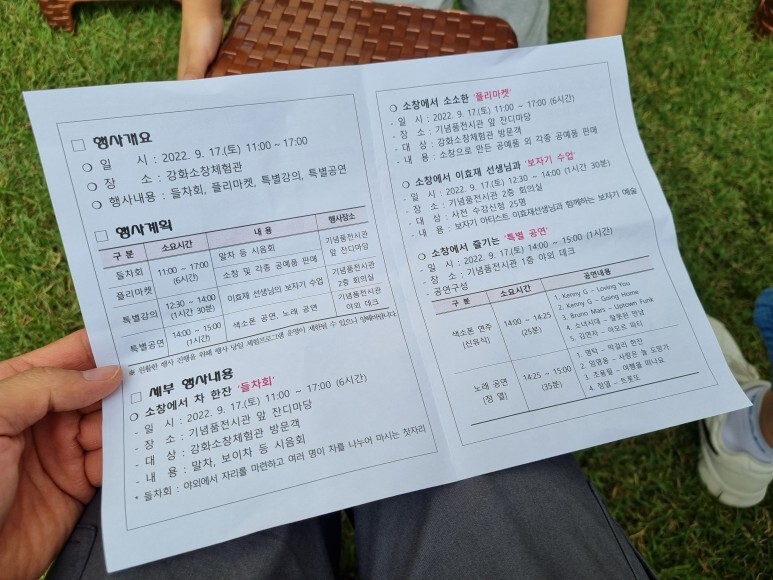 □ 행사개요
❍ 일 시 : 2022. 9. 17.(토) 11:00 ~ 17:00
❍ 장 소 : 강화소창체험관
❍ 행사내용 : 들차회, 플리마켓, 특별강의, 특별공연
□ 행사계획
구 분 소요시간 내 용 행사장소
들차회 11:00 ~ 17:00 (6시간) 말차 등 시음회 기념품전시관 앞 잔디마당
플리마켓 소창 및 각종 공예품 판매
특별강의 12:30 ~ 14:00 (1시간 30분) 이효재 선생님의 보자기 수업 기념품전시관 2층 회의실
특별공연 14:00 ~ 15:00 (1시간) 색소폰 공연, 노래 공연 기념품전시관 야외 데크
※ 원활한 행사 진행을 위해 행사 당일 체험프로그램 운영이 제한될 수 있으니 양해바랍니다.
□ 세부 행사내용
❍ 소창에서 차 한잔 '들차회'
- 일 시 : 2022. 9. 17.(토) 11:00 ~ 17:00 (6시간)
- 장 소 : 기념품전시관 앞 잔디마당
- 대 상 : 강화소창체험관 방문객
- 내 용 : 말차, 보이차 등 시음회
* 들차회 : 야외에서 자리를 마련하고 여러 명이 차를 나누어 마시는 찻자리
❍ 소창에서 소소한 '플리마켓'
- 일 시 : 2022. 9. 17.(토) 11:00 ~ 17:00 (6시간)
- 장 소 : 기념품전시관 앞 잔디마당
- 대 상 : 강화소창체험관 방문객
- 내 용 : 소창으로 만든 공예품 외 각종 공예품 판매
❍ 소창에서 이효재 선생님과 '보자기 수업'
- 일 시 : 2022. 9. 17.(토) 12:30 ~ 14:00 (1시간 30분)
- 장 소 : 기념품전시관 2층 회의실
- 대 상 : 사전 수강신청 25명
- 내 용 : 보자기 아티스트 이효재선생님과 함께하는 보자기 예술
❍ 소창에서 즐기는 '특별 공연'
- 일 시 : 2022. 9. 17.(토) 14:00 ~ 15:00 (1시간)
- 장 소 : 기념품전시관 1층 야외 데크
- 공연구성
구 분 소요시간 공연내용
색소폰 연주 (신유식) 14:00 ~ 14:25 (25분)
1. Kenny G – Loving You
2. Kenny G – Going Home
3. Bruno Mars – Uptown Funk
4. 소녀시대 – 다시만난
5. 김연자 – 아모르 파티
노래 공연 (정 열) 14:25 ~ 15:00 (35분)
1. 영탁 – 막걸리 한잔
2. 임영웅 – 사랑은 늘 도망가
3. 조용필 – 여행을 떠나요
4. 정열 – 트롯또